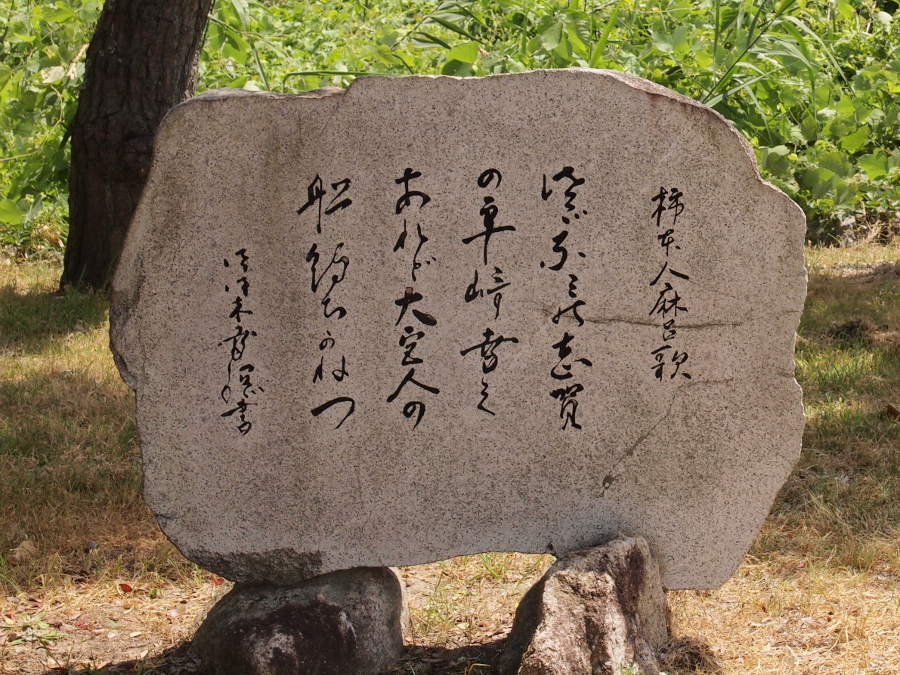 柿本人麻呂歌
さゞなみの志賀
の辛崎幸く
あれど大宮人の
船待ちかねつ
書